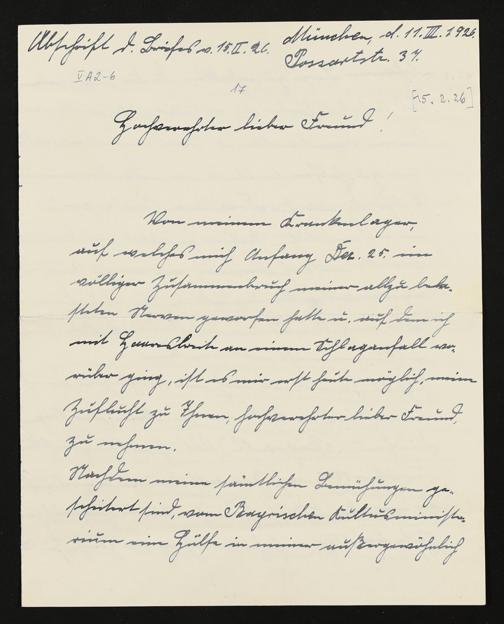 Abschrift d. Briefes v. 15.II.26.
München, d. 11.III.1926.
Possartstr. 37.
V A2-6
17
[15.2.26]
Hochverehrter lieber Freund!
Von meinem Krankenlager,
auf welches mich Anfang Dez. 25. ein
völliger Zusammenbruch meiner allzu bela-
steten Nerven geworfen hatte u. auf dem ich
mit Haaresbreite an einem Schlaganfall vo-
rüber ging, ist es mir erst heute möglich, meine
Zuflucht zu Ihnen, hochverehrter lieber Freund,
zu nehmen.
Nachdem meine sämtlichen Bemühungen ge-
scheitert sind, vom Bayrischen Kultusministe-
rium eine Hülfe in meiner außergewöhnlich